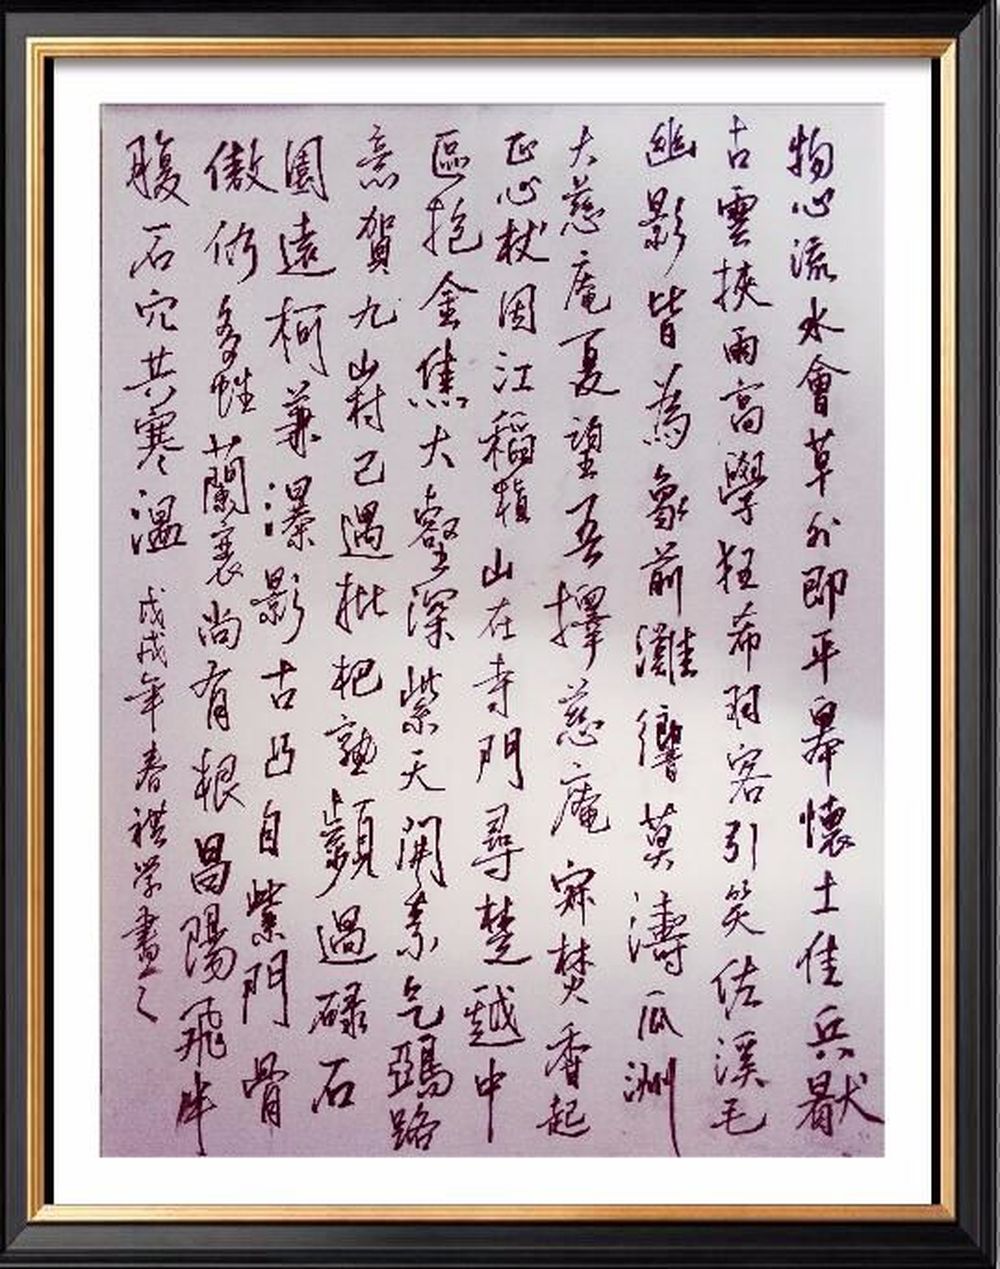 物心流水會草外即平皋懷土佳兵猷
古雲挾雨高學狂希羽客引笑佐溪毛
幽影皆為象前灘響莫濤瓜洲
大慈庵夏望吾擇慈庵寐焚香起
正心杖因江稻積山在寺門尋楚越中
區抱金焦大壑深紫天開素氣鵶路
意賀九山村已過枇杷熟顥過碌石
園遠柯兼瀑影古凸自紫門骨
傲俯多蘭裹尚有根昌陽飛半
腹石穴共寒溫
戊戌年春祺学書之